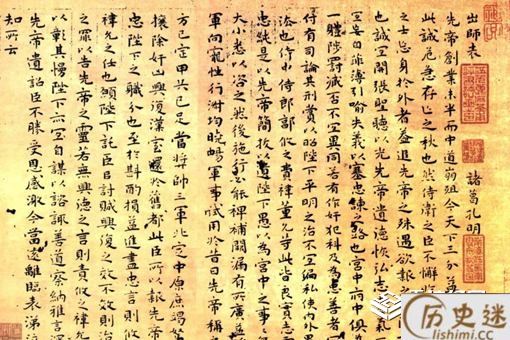 出師表 諸葛孔明
先帝創業未半而中道崩殂今天下三分益
此誠危急存亡之秋也然侍衛之臣不懈
之士忘身於外者蓋追先帝之殊遇欲報之
也誠宜開張聖聽以光先帝遺德恢弘志士之氣
宜妄自菲薄引喻失義以塞忠諫之路也宮中府中俱
一體陟罰臧否不宜異同若有作奸犯科及為忠善者
付有司論其刑賞以昭陛下平明之治不宜偏私使內外異
法也侍中侍郎郭攸之費禕董允等此皆良實志
忠純是以先帝簡拔以遺陛下愚以為宮中之事事
大小悉以咨之然後施行必能裨補闕漏有所廣益
軍向寵性行淑均曉暢軍事試用於昔日先帝稱之
方已定甲兵已足當獎帥三軍北定中原庶竭駑
攘除奸凶興復漢室還於舊都此臣所以報先帝
忠陛下之職分也至於斟酌損益進盡忠言則攸
禕允之任也願陛下託臣以討賊興復之效不效則治
之罪以告先帝之靈若無興德之言則責攸之
以彰其慢陛下亦宜自謀以諮諏善道察納雅言深
先帝遺詔臣不勝受恩感激今當遠離臨表涕
知所云
历史迷
lishimi.cc